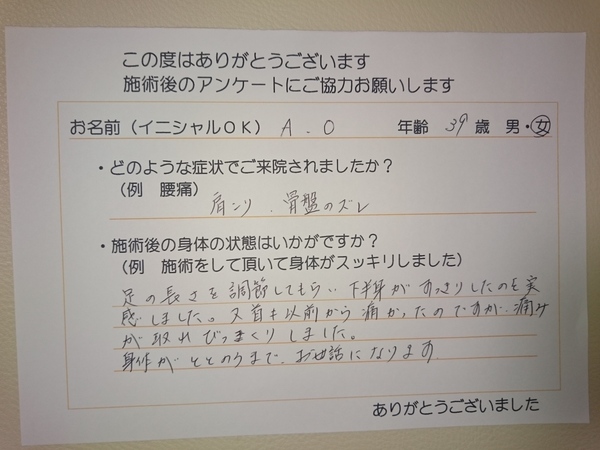 この度はありがとうございます
施術後のアンケートにご協力お願いします
お名前（イニシャルOK） A . O 年齢 39 歳 男・女
・どのような症状でご来院されましたか？
（例 腰痛）
肩コリ . 骨盤のズレ
・施術後の身体の状態はいかがですか？
（例 施術をして頂いて身体がスッキリしました）
足の長さを調節してもらい 下半身がすっきりしたのを実
感しました。又首も以前から痛かったのですが、痛み
が取れびっくりしました。
身体がととのうまで、お世話になります
ありがとうございました